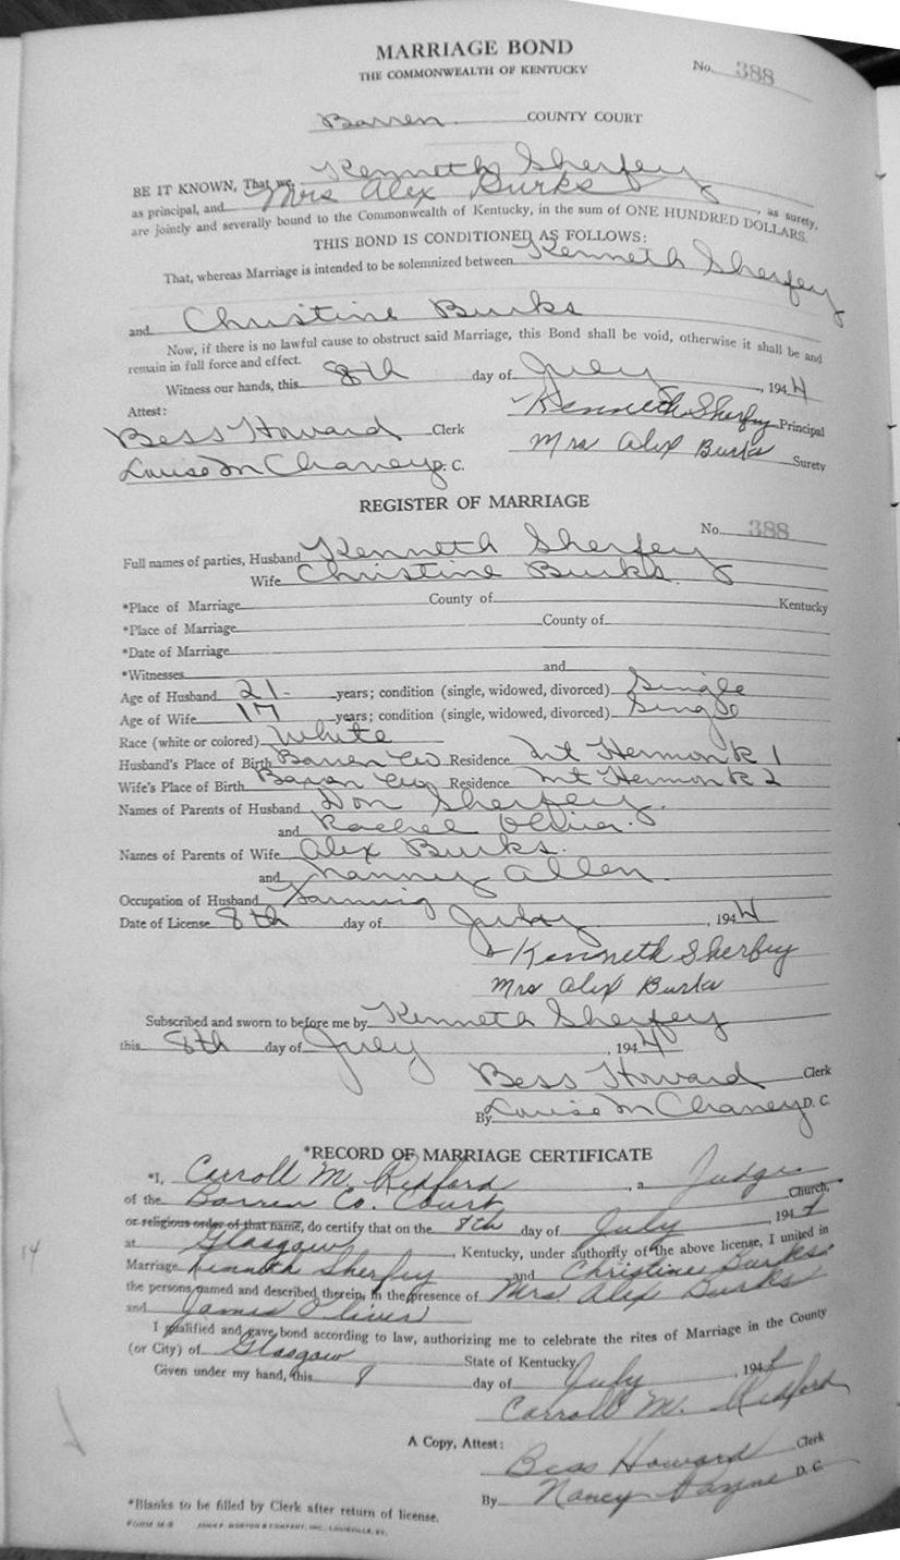 MARRIAGE BOND
THE COMMONWEALTH OF KENTUCKY
No. 388
Barren COUNTY COURT
BE IT KNOWN, That we, Kenneth Sherfey
as principal, and Mrs Alex Burks, as surety,
are jointly and severally bound to the Commonwealth of Kentucky, in the sum of ONE HUNDRED DOLLARS.
THIS BOND IS CONDITIONED AS FOLLOWS:
That, whereas Marriage is intended to be solemnized between Kenneth Sherfey
and Christine Burks
Now, if there is no lawful cause to obstruct said Marriage, this Bond shall be void, otherwise it shall be and
remain in full force and effect.
Witness our hands, this 8th day of July, 1944
Attest:
Kenneth Sherfey Principal
Bess Howard Clerk
Mrs Alex Burks Surety
Louise M Chaney D. C.
REGISTER OF MARRIAGE
No. 388
Full names of parties, Husband Kenneth Sherfey
Wife Christine Burks
*Place of Marriage County of Kentucky
*Place of Marriage County of
*Date of Marriage
*Witnesses and
Age of Husband 21 years; condition (single, widowed, divorced) Single
Age of Wife 17 years; condition (single, widowed, divorced) Single
Race (white or colored) White
Husband's Place of Birth Barren Co Residence Mt Hermon R 1
Wife's Place of Birth Barren Co Residence Mt Hermon R 2
Names of Parents of Husband Don Sherfey
and Rachel
Names of Parents of Wife Alex Burks.
and Nanny Allen.
Occupation of Husband Farming
Date of License 8th day of July, 1944
Kenneth Sherfey
Mrs Alex Burks
Subscribed and sworn to before me by Kenneth Sherfey
this 8th day of July, 1944
Bess Howard Clerk
By Louise M Chaney D. C.
*RECORD OF MARRIAGE CERTIFICATE
*I, Carroll M. Redford, a Judge
of the Barren Co. Court Church,
or religious order of that name, do certify that on the 8th day of July 1944
at Glasgow, Kentucky, under authority of the above license, I united in
Marriage Kenneth Sherfey and Christine Burks
the persons named and described therein, in the presence of Mrs. Alex Burks
and James Oliver
I qualified and gave bond according to law, authorizing me to celebrate the rites of Marriage in the County
(or City) of Glasgow State of Kentucky
Given under my hand, this 8 day of July, 194
Carroll M. Redford
A Copy, Attest:
Bess Howard Clerk
By Nancy Payne D. C.
*Blanks to be filled by Clerk after return of license.
14